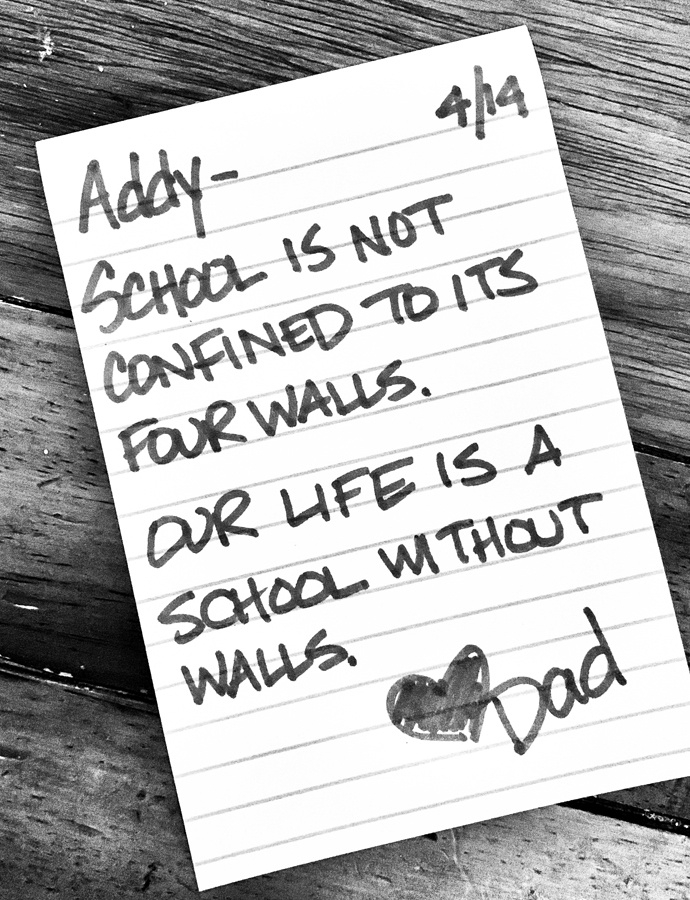 4/14
Addy-
SCHOOL IS NOT
CONFINED TO ITS
FOUR WALLS.
OUR LIFE IS A
SCHOOL WITHOUT
WALLS.
Dad